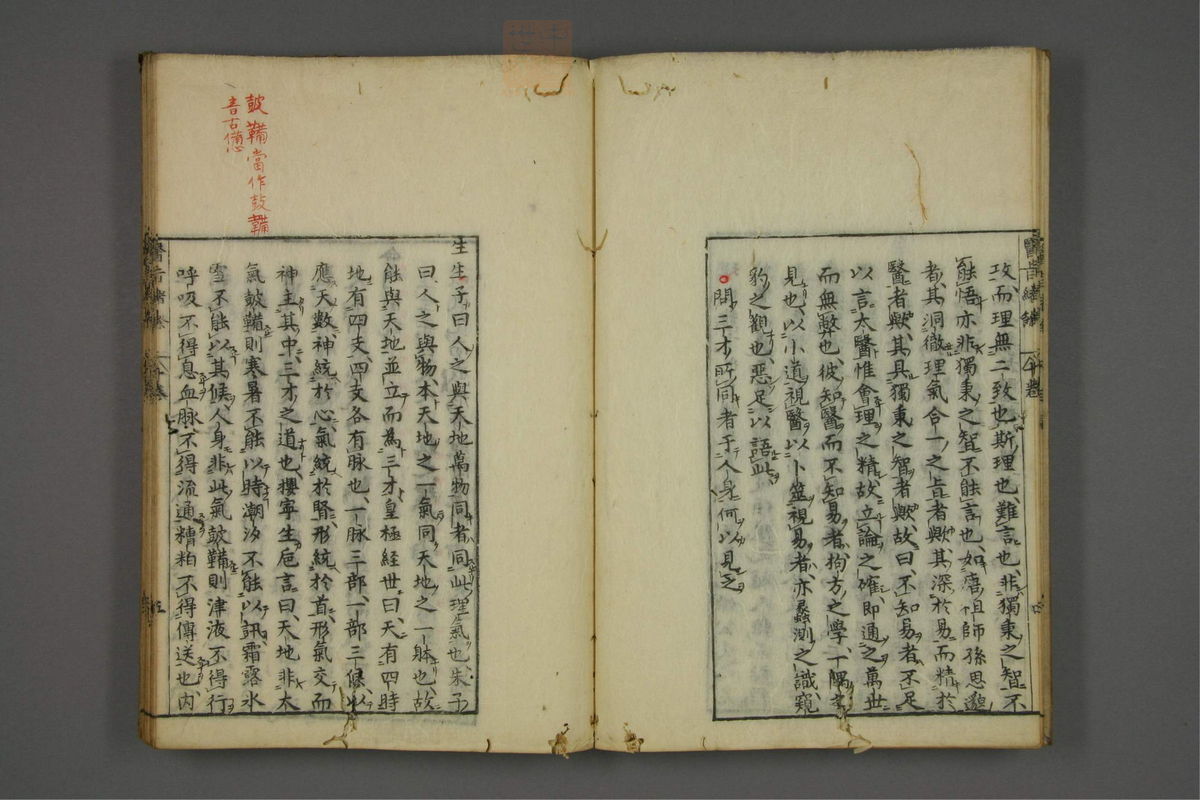 攻、而理無二致也、斯理也、難言也、非獨秉之智不
能悟、亦非獨秉之智不能言也、如唐祖師孫思邈
者、其洞徹理氣合一之旨者歟、其深於易而精於
醫者歟、其具獨秉之智者歟、故曰不知易者不足
以言太醫惟會理之精故立論之確即通之萬世
而無弊也、彼知醫而不知易者拘方之學一隅之
見也、以小道視醫以卜筮視易者亦蠡測之識窺
豹之觀也、惡足以語此
問三才所同者于人身何以見之
生生子曰人之與天地萬物同者同此理氣也、朱子
曰、人之與物本天地之一氣同天地之一躰也、故
能與天地並立而為三才、皇極経世曰、天有四時
地有四支、四支各有脉也、一脉三部、一部三候、以
應天數、神統於心、氣統於腎、形統於首、形氣交而
神主其中、三才之道也、攖寧生巵言曰、天地非太
氣鼓鞴則寒暑不能以時潮汐不能以訊霜露氷
雪不能以其候、人身非此氣鼓鞴則津液不得行
呼吸不得息血脉不得流通糟粕不得傳送也内
鼓鞴當作鼓鞴
音古憊